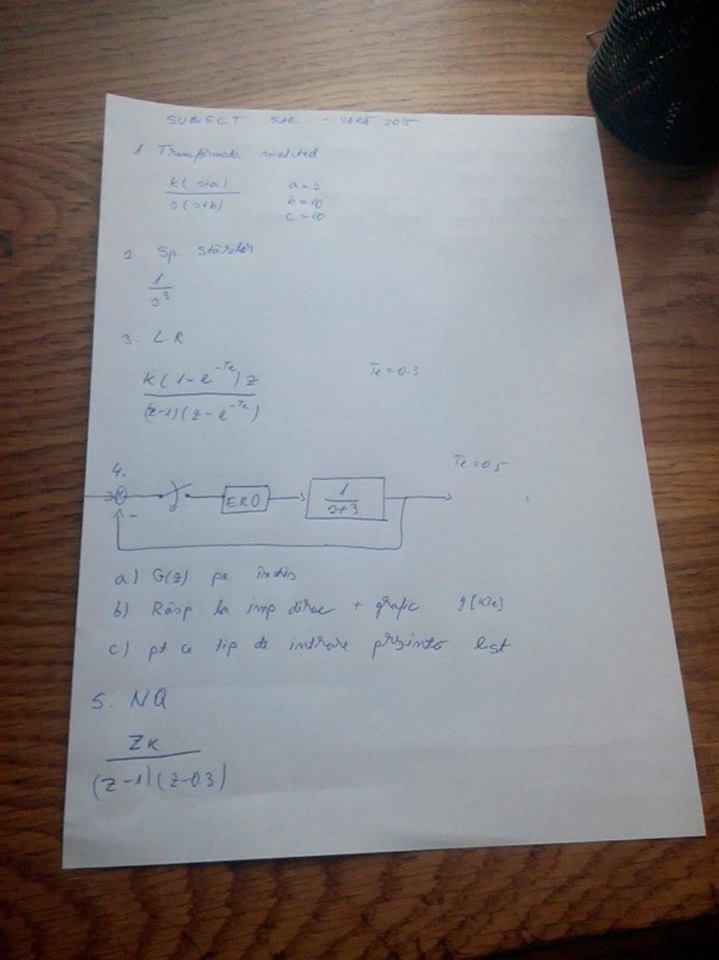 SUBIECT SAE - VARĂ 2015
1 Transformata matched
K(s+a)
s(s+b)
a=2
b=10
c=10
2. Sp stărilor
1
s³
3. L.R
K(1-e^-Te)z
(z-1)(z-e^-Te)
Te=0.3
4.
Te=0.5
-
ERO
1
s+3
a) G(z) pe închis
b) Răsp la imp dirac + grafic g[kTe]
c) pt ce tip de intrare prezintă εst
5. NQ
ZK
(z-1)(z-0.3)